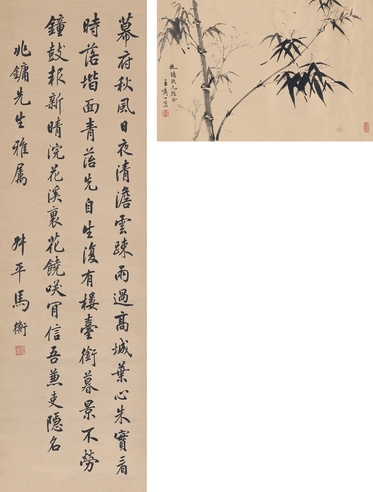 幕府秋風日夜清澹雲疎雨過高城葉心朱實看
時落堦面青苔先自生復有樓臺銜暮景不勞
鐘鼓報新晴浣花溪裏花饒咲肎信吾兼吏隱名
兆鏞先生雅屬
叔平馬衡